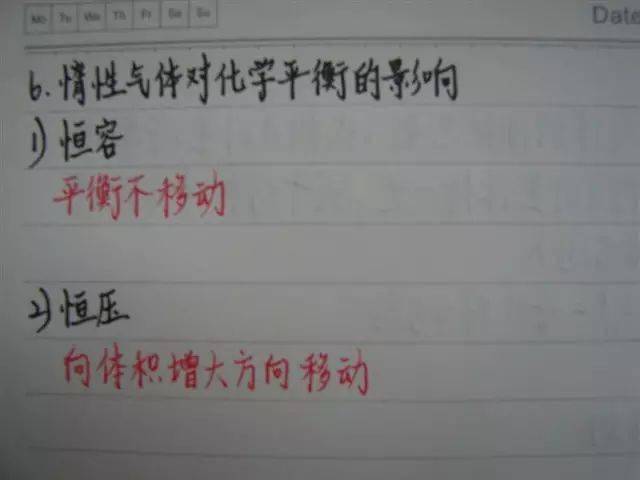 Mo Tu We Th Fr Sa Su
Date
6. 惰性气体对化学平衡的影响
1) 恒容
平衡不移动
2) 恒压
向体积增大方向移动